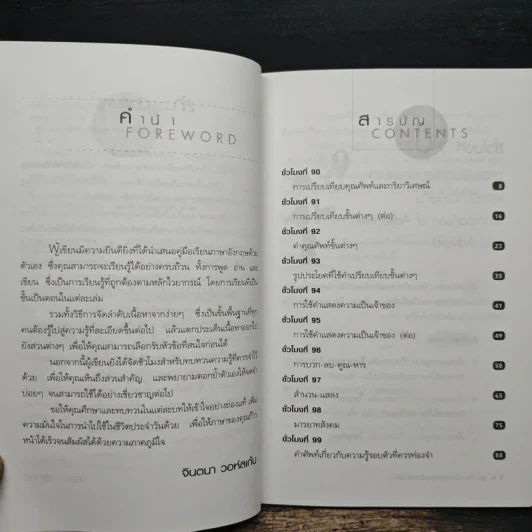 คำนำ
FOREWORD
ผู้เขียนมีความยินดียิ่งที่ได้นำเสนอคู่มือเรียนภาษาอังกฤษด้วย
ตัวเอง ซึ่งคุณสามารถจะเรียนรู้ได้อย่างครบถ้วน ทั้งการพูด อ่าน และ
เขียน ซึ่งเป็นการเรียนรู้ที่ถูกต้องตามหลักไวยากรณ์ โดยการเรียนที่เป็น
ขั้นเป็นตอนในแต่ละเล่ม
รวมทั้งวิธีการจัดลำดับเนื้อหาจากง่ายๆ ซึ่งเป็นขั้นพื้นฐานที่ทุก
คนต้องรู้ไปสู่ความรู้ที่ละเอียดขึ้นต่อไป แล้วแตกประเด็นเนื้อหาออกไป
ยังส่วนต่างๆ เพื่อให้คุณสามารถเลือกรับหัวข้อที่สนใจก่อนได้
นอกจากนี้ผู้เขียนยังได้จัดชั่วโมงสำหรับทบทวนความรู้ที่ควรจำไว้
ด้วย เพื่อให้คุณเห็นถึงส่วนสำคัญ และพยายามตอกย้ำตัวเองให้จดจำ
บ่อยๆ จนสามารถใช้ได้อย่างเชี่ยวชาญต่อไป
ขอให้คุณศึกษาและทบทวนในแต่ละบทให้เข้าใจอย่างถ่องแท้ เพิ่ม
ความมั่นใจในการนำไปใช้ในชีวิตประจำวันด้วย เพื่อให้ภาษาของคุณก้าว
หน้าได้เร็วจนสัมผัสได้ด้วยความภาคภูมิใจ
จินตนา วอห์ลเก้น
สารบัญ
CONTENTS
ชั่วโมงที่ 90
การเปรียบเทียบคุณศัพท์และกริยาวิเศษณ์ 8
ชั่วโมงที่ 91
การเปรียบเทียบขั้นต่างๆ (ต่อ) 16
ชั่วโมงที่ 92
คำคุณศัพท์ขั้นต่างๆ 23
ชั่วโมงที่ 93
รูปประโยคที่ใช้คำเปรียบเทียบขั้นต่างๆ 35
ชั่วโมงที่ 94
การใช้คำแสดงความเป็นเจ้าของ 41
ชั่วโมงที่ 95
การใช้คำแสดงความเป็นเจ้าของ (ต่อ) 49
ชั่วโมงที่ 96
การบวก-ลบ-คูณ-หาร 58
ชั่วโมงที่ 97
สำนวน-แสลง 65
ชั่วโมงที่ 98
มารยาทสังคม 75
ชั่วโมงที่ 99
คำศัพท์เกี่ยวกับความรู้รอบตัวที่ควรท่องจำ